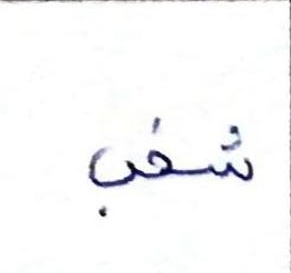 شغب